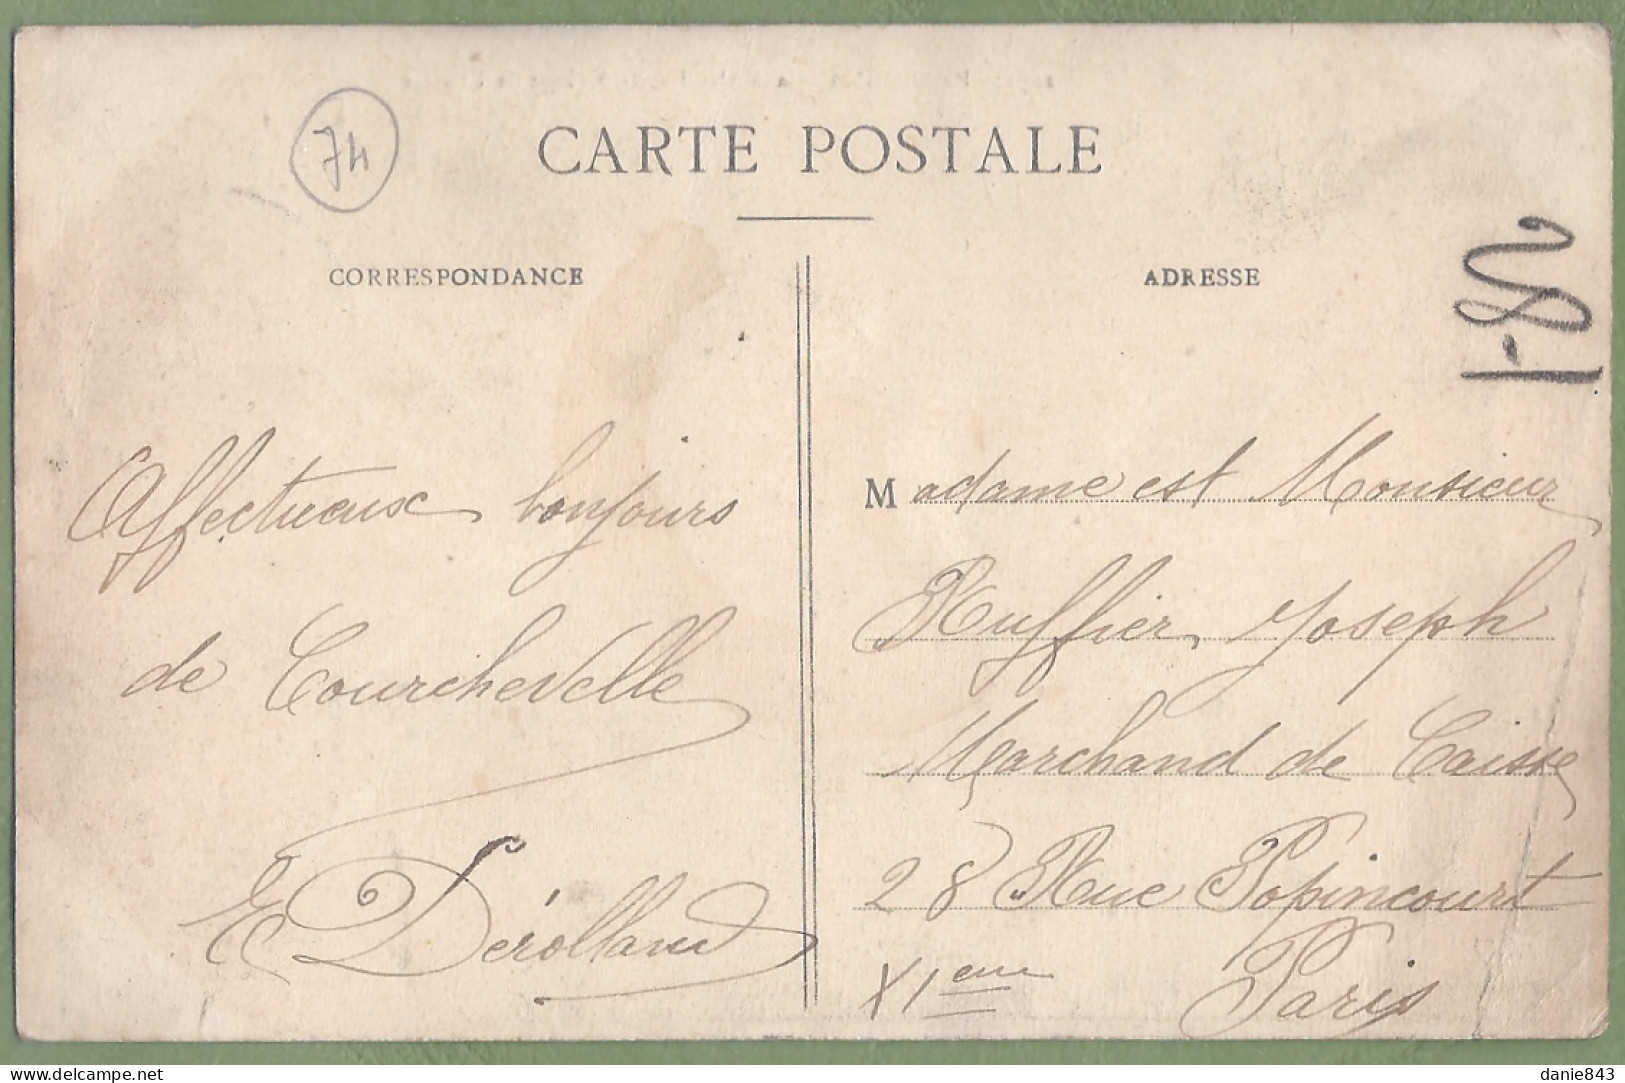 74
CARTE POSTALE
CORRESPONDANCE
Affectueux bonjours
de Courchevelle
E Dérolland
ADRESSE
Madame est Monsieur
Ruffier Joseph
Marchand de Caisse
28 Rue Popincourt
XIeme Paris
delcampe.net
danie843